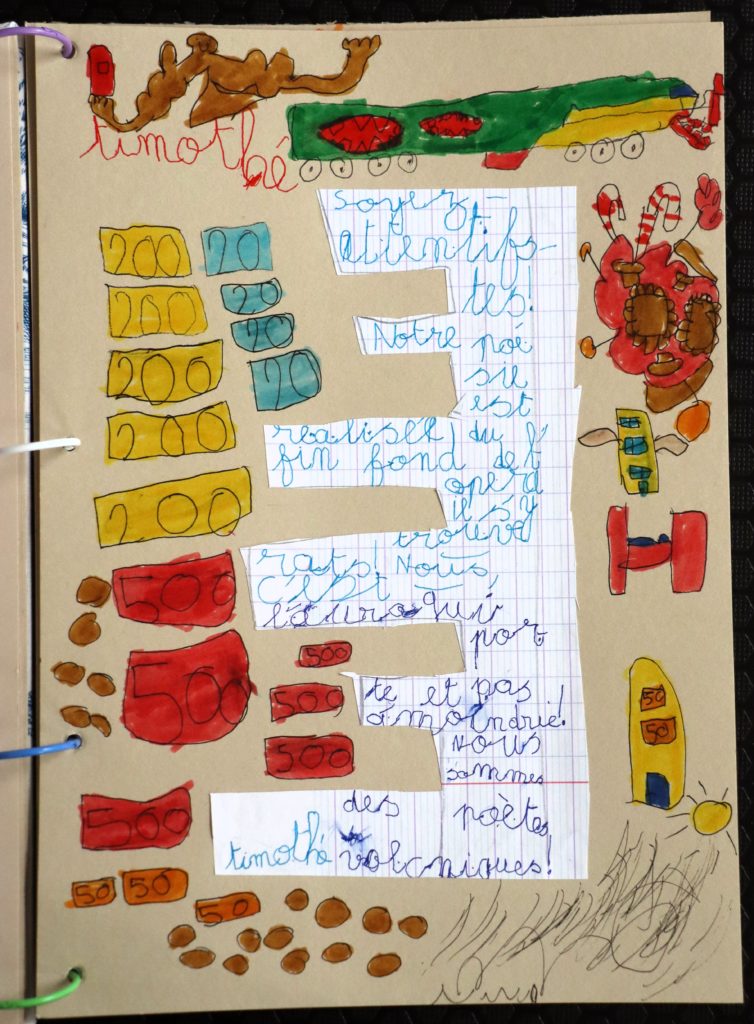 timothé
soyez-
attentifs-
tes!
Notre poé
sie
est
réalisée/du
fin fond de l'
opéra
il s'y
trouve
rats! Nous,
C'est
qui
por
te et pas
amoindrie!
Nous
sommes
des poètes
timothé volcniques!
200 20
200 20
200 20
200 20
200
500
500 500
500
500
500
50 50
50
50
50